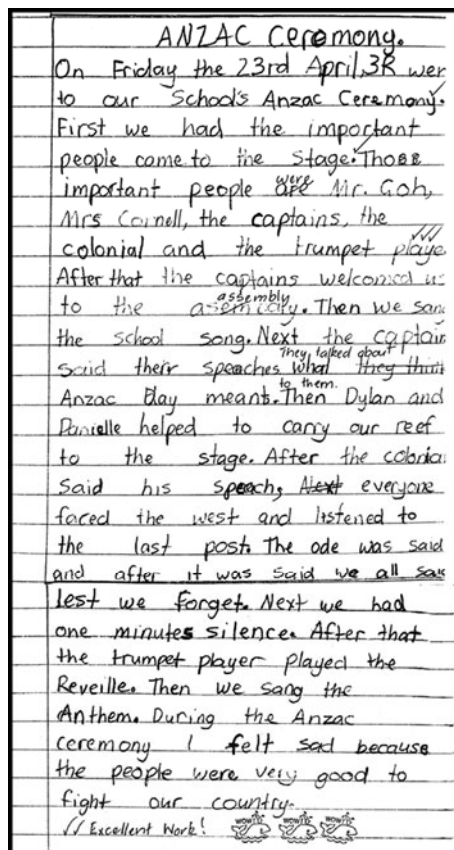 ANZAC Ceremony.
On Friday the 23rd April, 3R wen
to our School's Anzac Ceremony.
First we had the important
people come to the stage. Those
important people are were Mr. Goh,
Mrs Cornell, the captains, the
colonial and the trumpet playe
After that the captains welcomed us
to the assembly. Then we san
the school song. Next the captain
said their speaches They talked about what they think
Anzac Day meant to them. Then Dylan and
Danielle helped to carry our reef
to the stage. After the colonia
said his speach, Next everyone
faced the west and listened to
the last post. The ode was said
and after it was said we all sai
lest we forget. Next we had
one minutes silence. After that
the trumpet player played the
Reveille. Then we sang the
Anthem. During the Anzac
ceremony I felt sad because
the people were very good to
fight our country.
Excellent Work! WOW WOW WOW